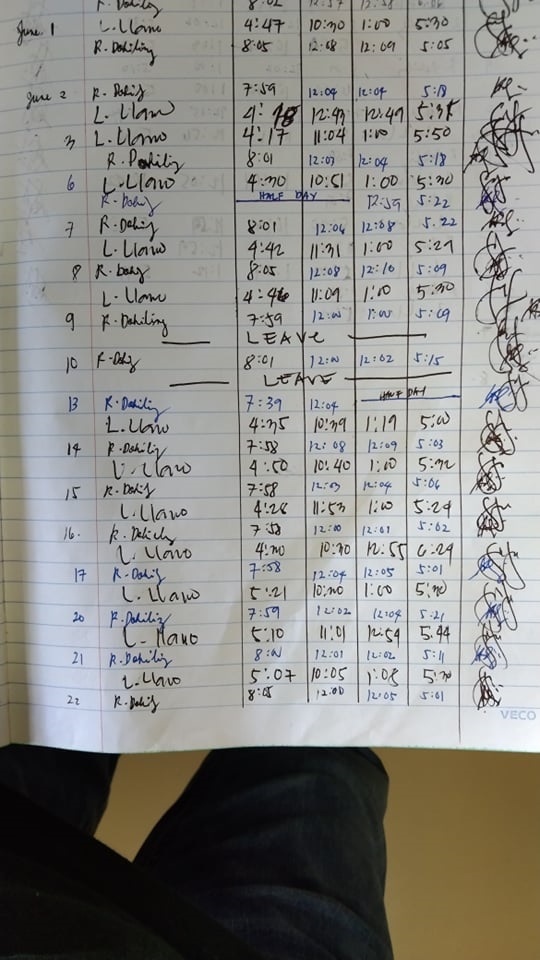 R. Dahiling 8:02
June 1 L. Llano 4:47 10:30 1:00 5:30
R. Dahiling 8:05 12:08 12:09 5:05
June 2 R. Dahiling 7:59 12:04 12:04 5:18
L. Llano 4:18 12:43 12:49 5:35
3 L. Llano 4:17 11:04 1:00 5:50
R. Dahiling 8:01 12:03 12:04 5:18
6 L. Llano 4:30 10:51 1:00 5:30
R. Dahiling HALF DAY 12:59 5:22
7 R. Dahiling 8:01 12:06 12:08 5:22
L. Llano 4:42 11:31 1:00 5:29
8 R. Dahiling 8:05 12:08 12:10 5:09
L. Llano 11:09 1:00 5:30
9 R. Dahiling 7:59 12:00 1:00 5:09
LEAVE
10 R. Dahiling 8:01 12:00 12:02 5:15
LEAVE
13 R. Dahiling 7:39 12:04 HALF DAY
L. Llano 4:35 10:39 1:19 5:00
14 R. Dahiling 7:58 12:08 12:09 5:03
L. Llano 4:50 10:40 1:00 5:32
15 R. Dahiling 7:58 12:03 12:04 5:06
L. Llano 4:26 11:53 1:00 5:29
16. R. Dahiling 7:58 12:00 12:01 5:02
L. Llano 4:30 10:30 12:55 6:29
17 R. Dahiling 7:58 12:04 12:05 5:01
L. Llano 5:21 10:30 1:00 5:30
20 R. Dahiling 7:59 12:02 12:04 5:21
L. Llano 5:10 11:01 12:54 5:44
21 R. Dahiling 8:00 12:01 12:02 5:11
L. Llano 5:07 10:05 1:08 5:30
22 R. Dahiling 8:05 12:00 12:05 5:01
VECO